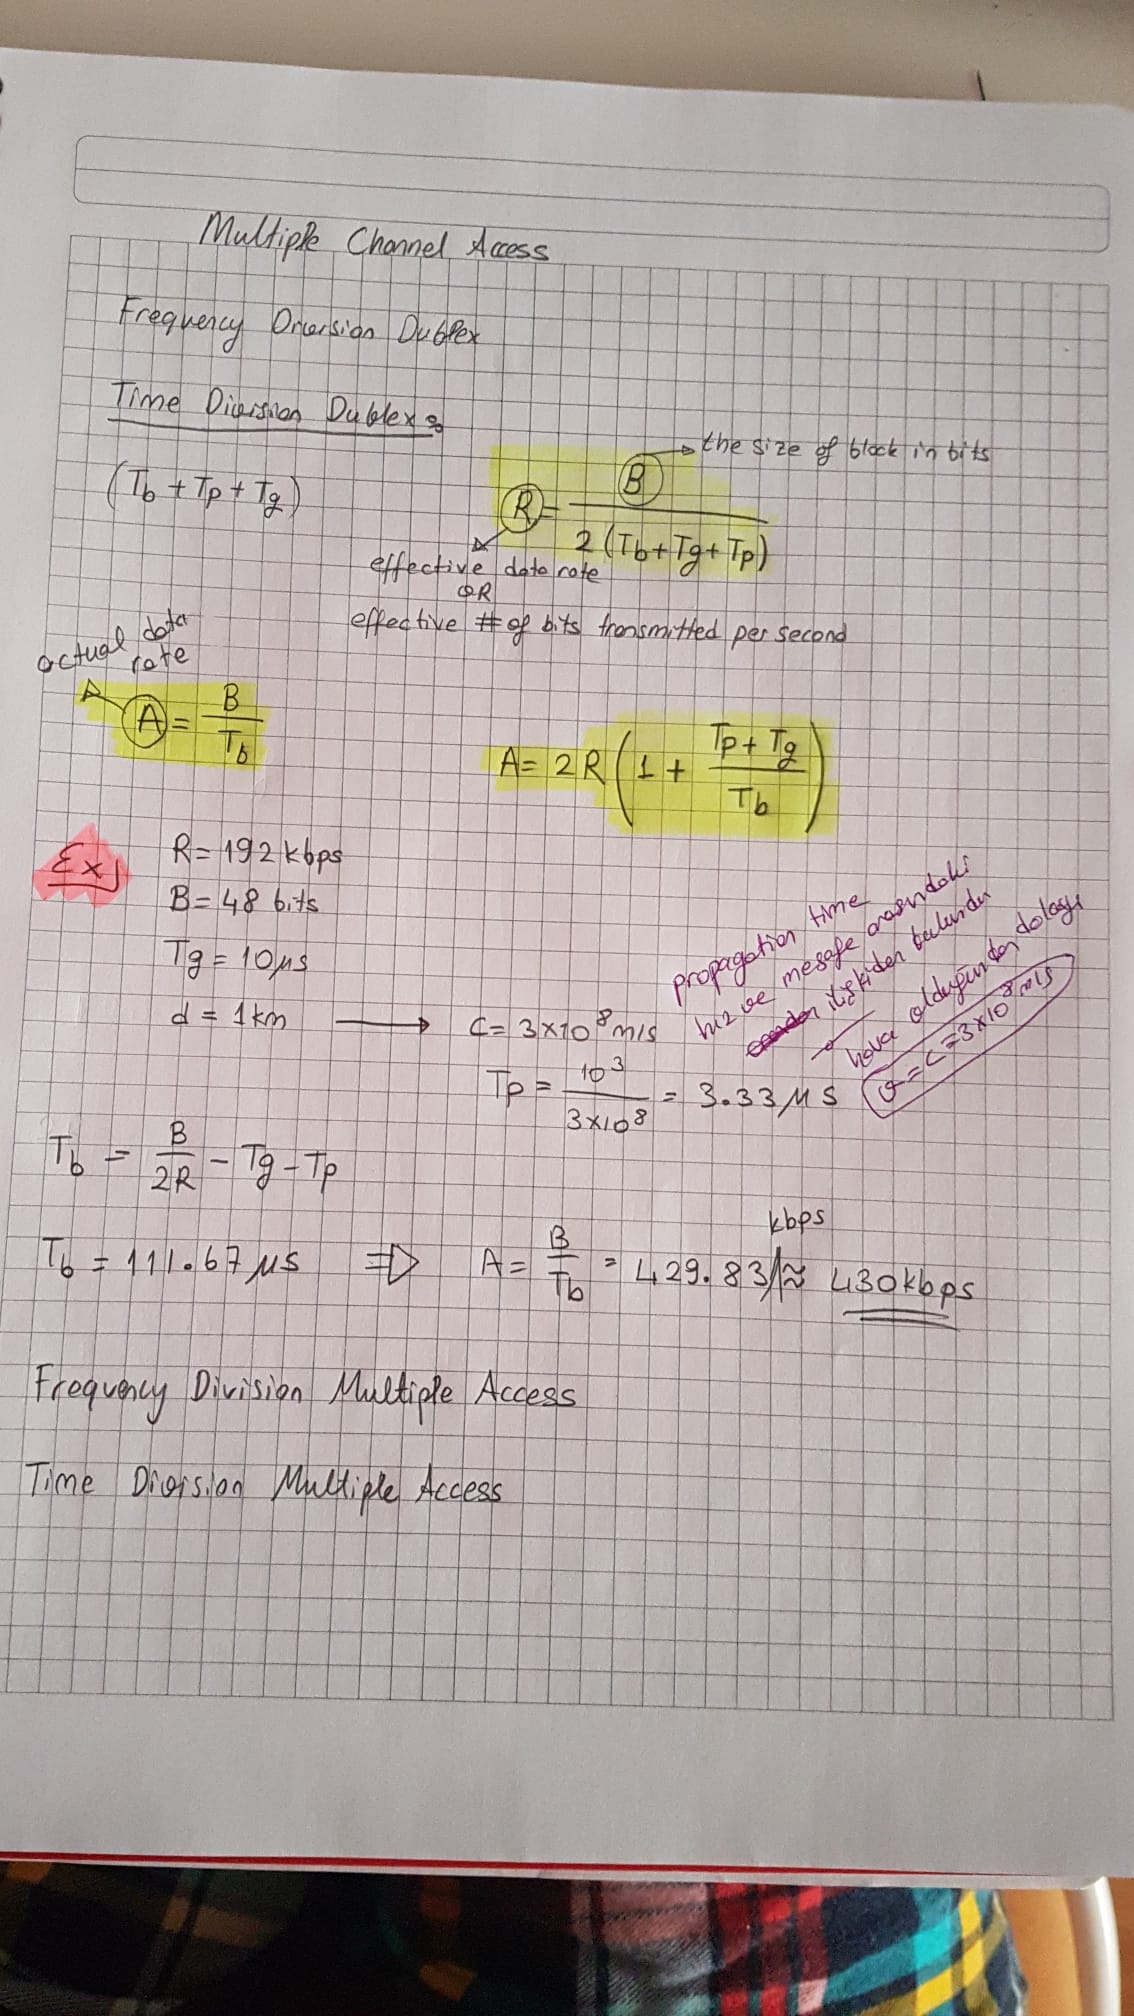 Multiple Channel Access
Frequency Division Dublex
Time Division Dublex :
(Tb + Tp + Tg)
R = B / 2 (Tb + Tg + Tp)
the size of block in bits
effective data rate
OR
effective # of bits transmitted per second
actual data rate
A = B / Tb
A = 2R (1 + (Tp + Tg) / Tb)
Ex)
R = 192 kbps
B = 48 bits
Tg = 10 μs
d = 1 km → C = 3×10^8 m/s
propagation time
hız ve mesafe arasındaki
ilişkiden bulundu
hava olduğundan dolayı
v = c = 3×10^8 m/s
Tp = 10^3 / 3×10^8 = 3.33 μs
Tb = B / 2R - Tg - Tp
Tb = 111.67 μs ⇒ A = B / Tb = 429.83 kbps ≈ 430 kbps
Frequency Division Multiple Access
Time Division Multiple Access